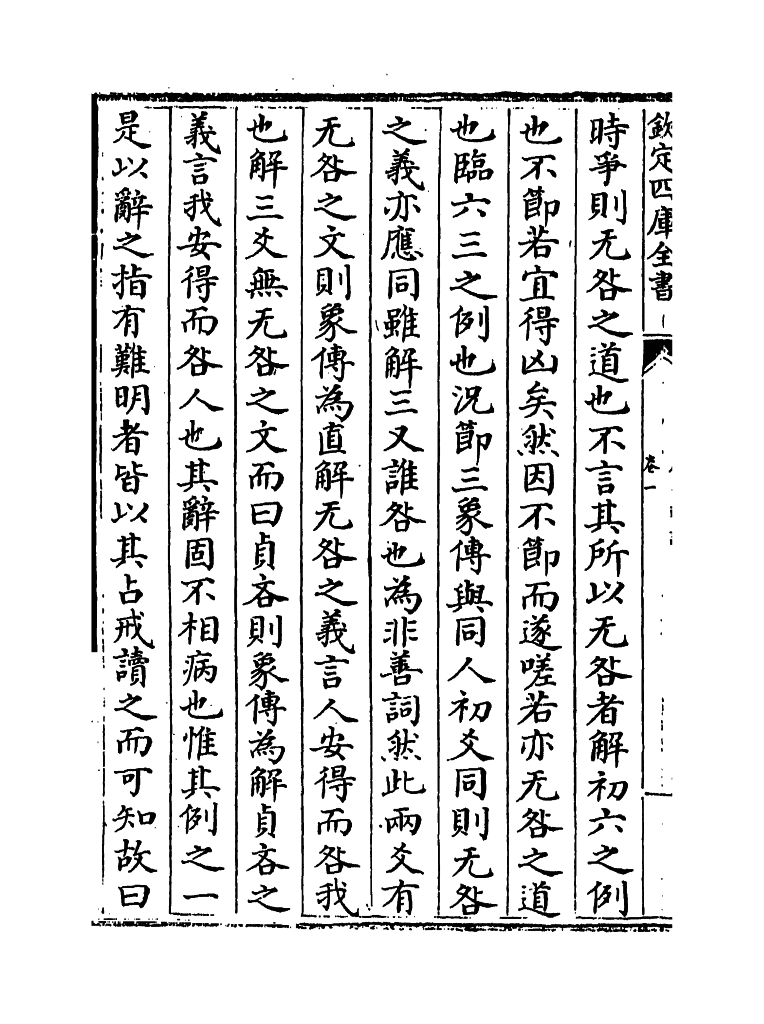 欽定四庫全書
卷一
時爭則无咎之道也不言其所以无咎者解初六之例
也不節若宜得凶矣然因不節而遂嗟若亦无咎之道
也臨六三之例也況節三象傳與同人初爻同則无咎
之義亦應同雖解三又誰咎也為非善詞然此兩爻有
无咎之文則象傳為直解无咎之義言人安得而咎我
也解三爻無无咎之文而曰貞吝則象傳為解貞吝之
義言我安得而咎人也其辭固不相病也惟其例之一
是以辭之指有難明者皆以其占戒讀之而可知故曰